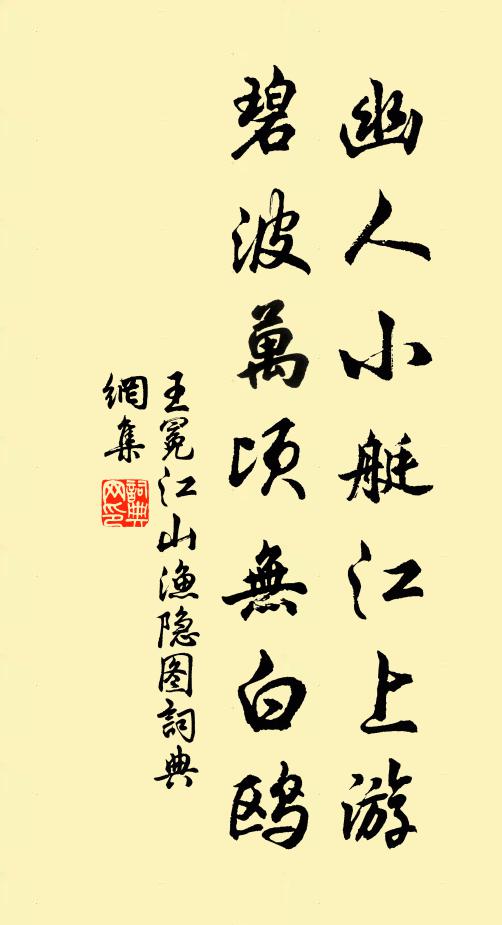 幽人小艇江上游
碧波萬頃無白鸥
王冕江山漁隐图詞典
網集
詞典
网印